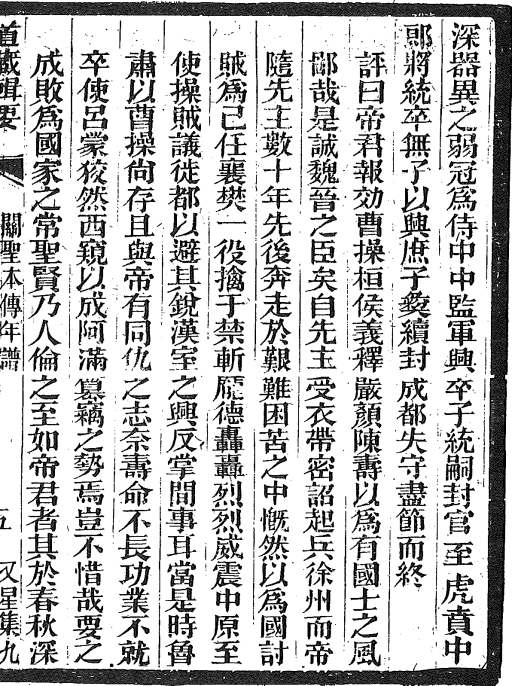 深器異之弱冠為侍中中監軍興卒子統嗣封官至虎賁中
郎將統卒無子以興庶子彝續封成都失守盡節而終
評曰帝君報効曹操桓侯義釋嚴顏陳壽以為有國士之風
鄙哉是誠魏晉之臣矣自先主受衣帶密詔起兵徐州而帝
隨先主數十年先後奔走於艱難困苦之中慨然以為國討
賊為己任襄樊一役擒于禁斬龐德轟轟烈烈威震中原至
使操賊議徙都以避其銳漢室之興反掌間事耳當是時魯
肅以曹操尚存且與帝有同仇之志奈壽命不長功業不就
卒使呂蒙狡然西窺以成阿滿篡竊之勢焉豈不惜哉要之
成敗為國家之常聖賢乃人倫之至如帝君者其於春秋深
道藏輯要 關聖本傳年譜 五 又星集九